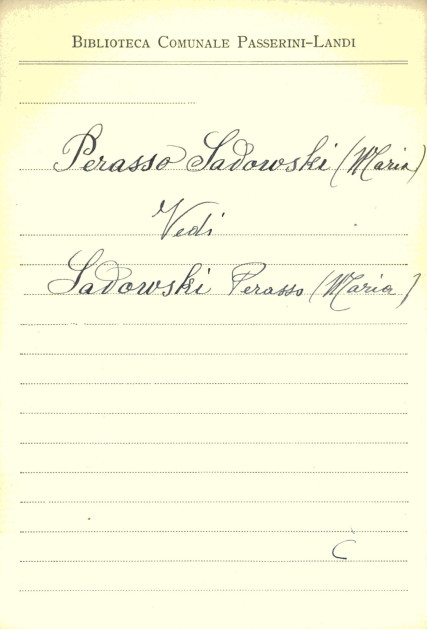 BIBLIOTECA COMUNALE PASSERINI-LANDI
Perasso Sadowski (Maria)
Vedi
Sadowski Perasso (Maria)
C